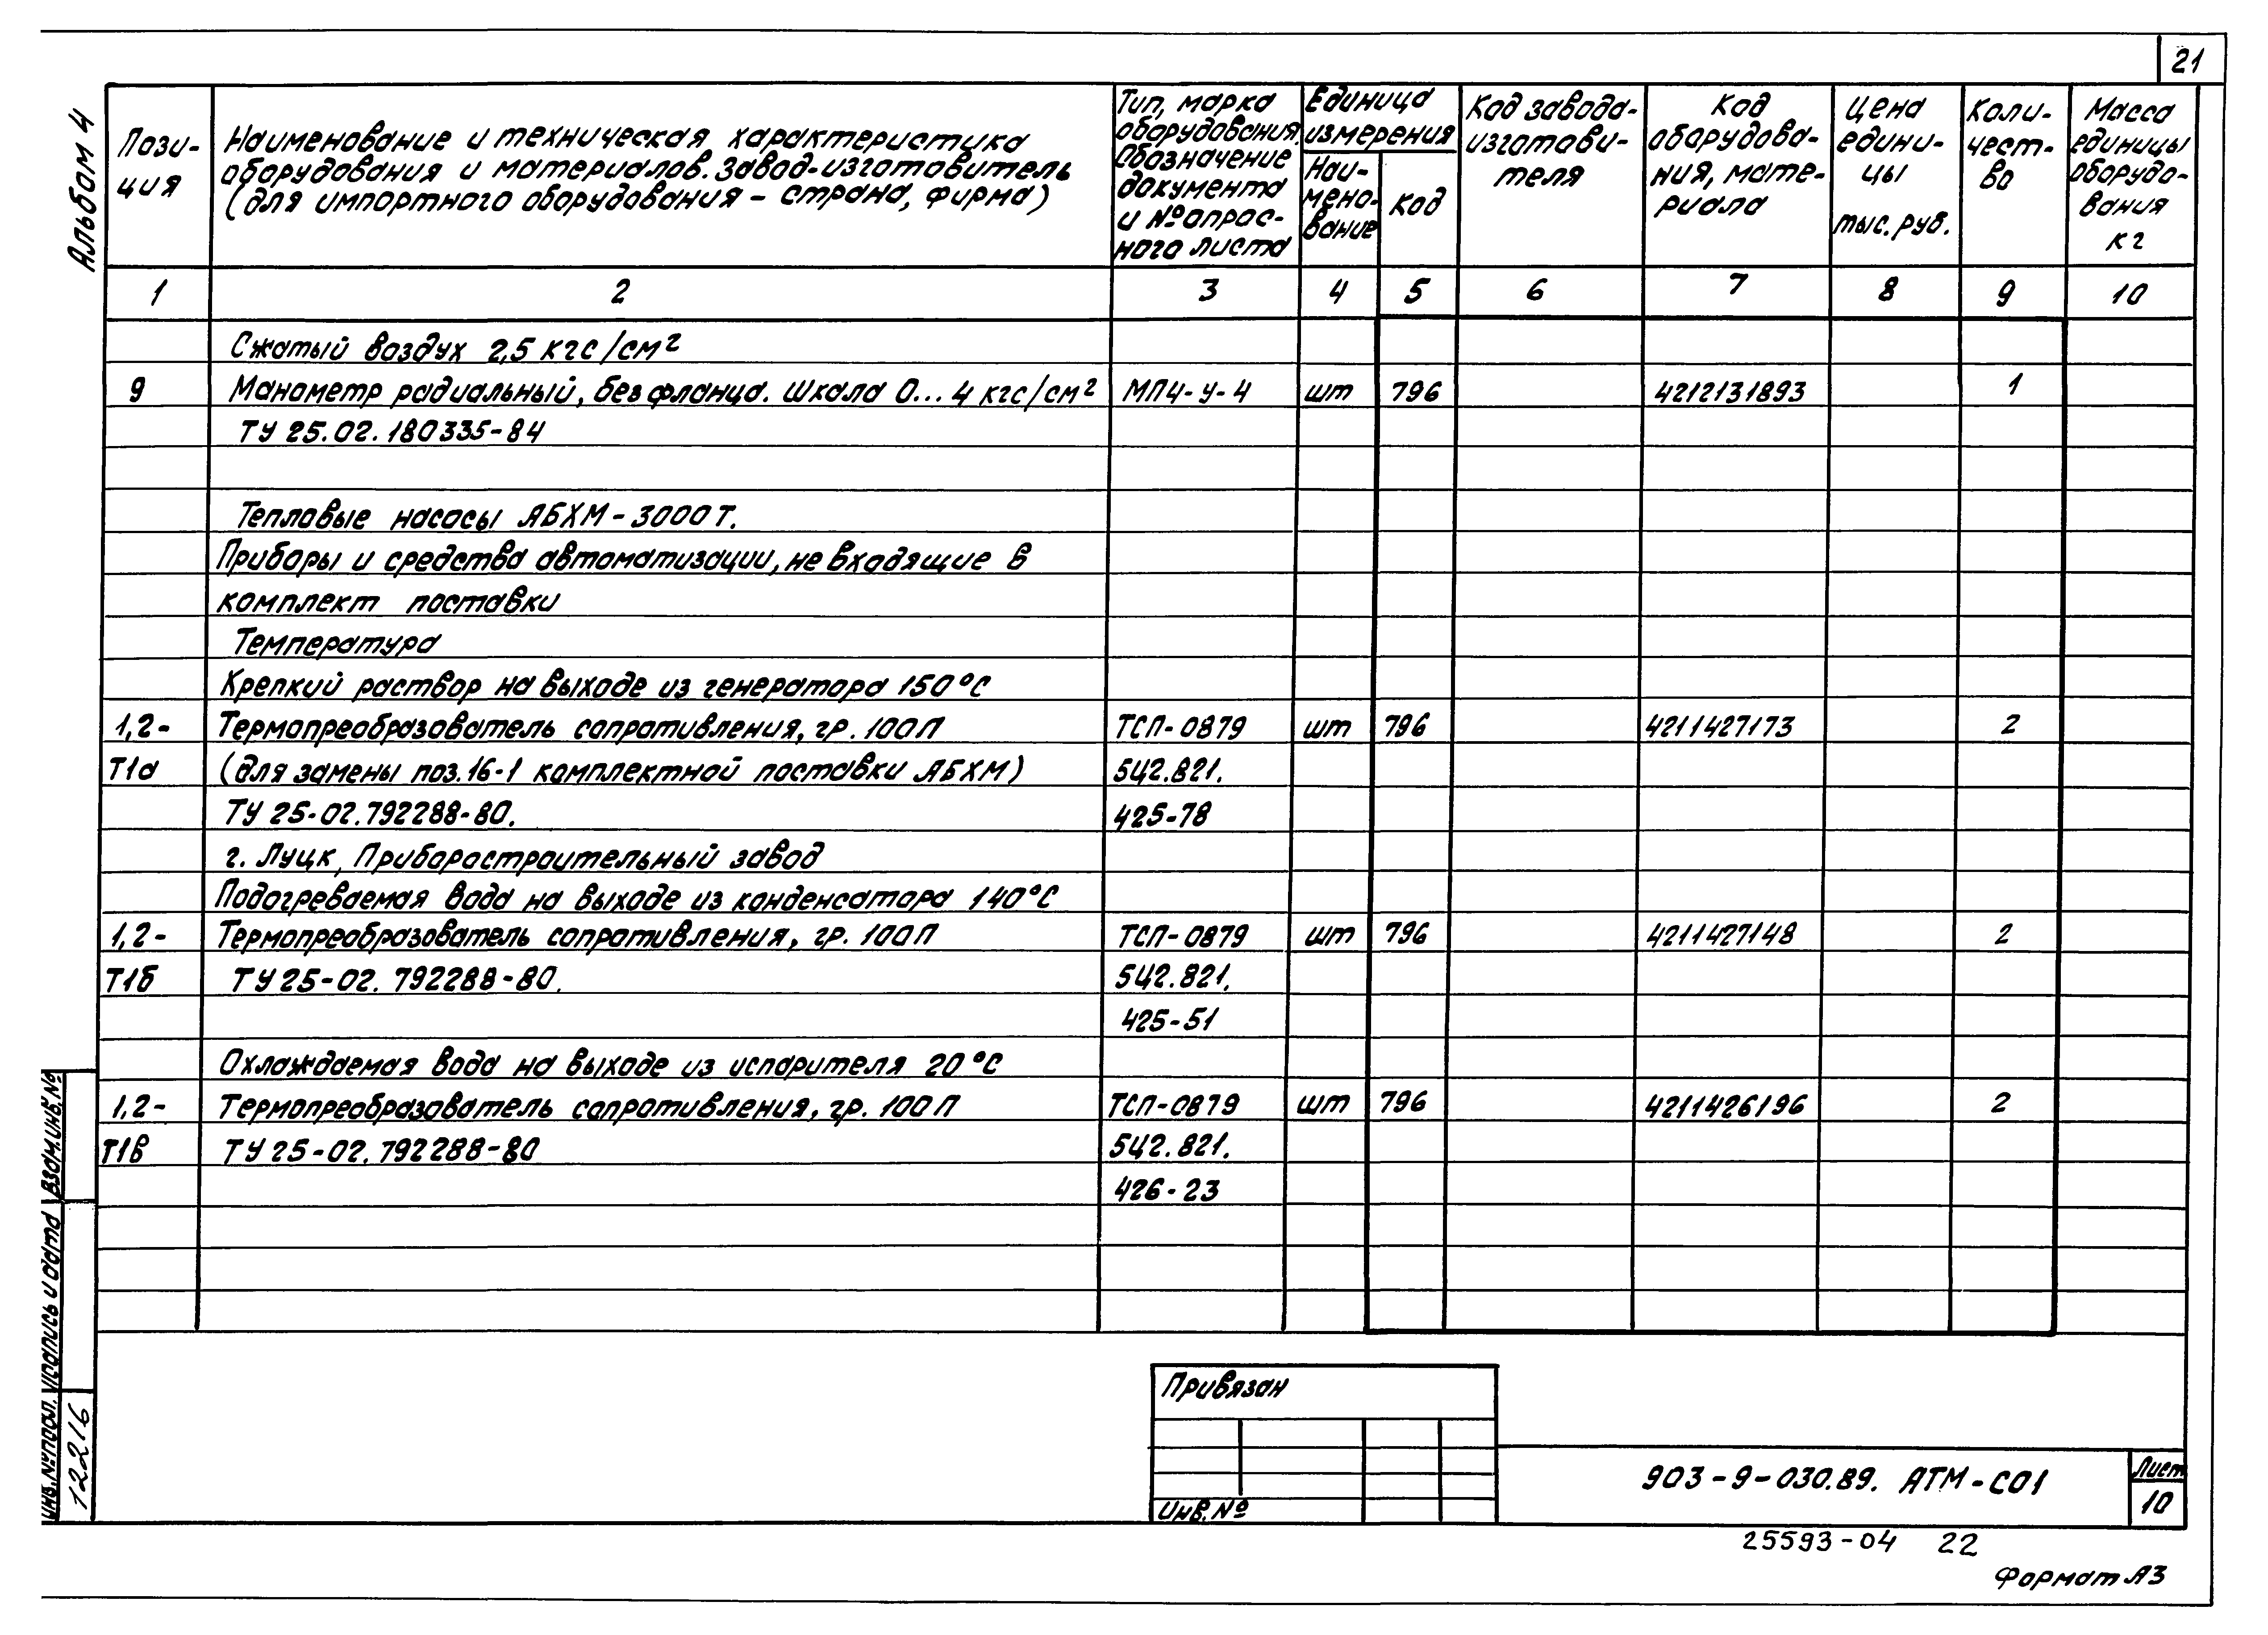 21
Альбом 4
Пози-
ция
Наименование и техническая характеристика
оборудования и материалов. Завод-изготовитель
(для импортного оборудования – страна, фирма)
Тип, марка
оборудования.
Обозначение
документа
и № опрос-
ного листа
Единица
измерения
Наи-
мено-
вание
Код
Код завода-
изготови-
теля
Код
оборудова-
ния, мате-
риала
Цена
едини-
цы
тыс. руб.
Коли-
чест-
во
Масса
единицы
оборудо-
вания
кг
1 2 3 4 5 6 7 8 9 10
Сжатый воздух 2,5 кгс/см²
9 Манометр радиальный, без фланца. Шкала 0...4 кгс/см² МП4-У-4 шт 796 4212131893 1
ТУ 25.02.180335-84
Тепловые насосы АБХМ-3000Т.
Приборы и средства автоматизации, не входящие в
комплект поставки
Температура
Крепкий раствор на выходе из генератора 150°С
1,2- Термопреобразователь сопротивления, гр. 100П ТСП-0879 шт 796 4211427173 2
Т1а (для замены поз.16-1 комплектной поставки АБХМ) 542.821.
ТУ 25-02.792288-80. 425-78
г. Луцк, Приборостроительный завод
Подогреваемая вода на выходе из конденсатора 140°С
1,2- Термопреобразователь сопротивления, гр. 100П ТСП-0879 шт 796 4211427148 2
Т1б ТУ 25-02.792288-80. 542.821.
425-51
Охлаждаемая вода на выходе из испарителя 20°С
1,2- Термопреобразователь сопротивления, гр. 100П ТСП-0879 шт 796 4211426196 2
Т1в ТУ 25-02.792288-80 542.821.
426-23
Взам.инв.№
Подпись и дата
Инв.№подл.
12216
Привязан
Инв.№
903-9-030.89. АТМ-СО1
Лист
10
25593-04 22
Формат А3